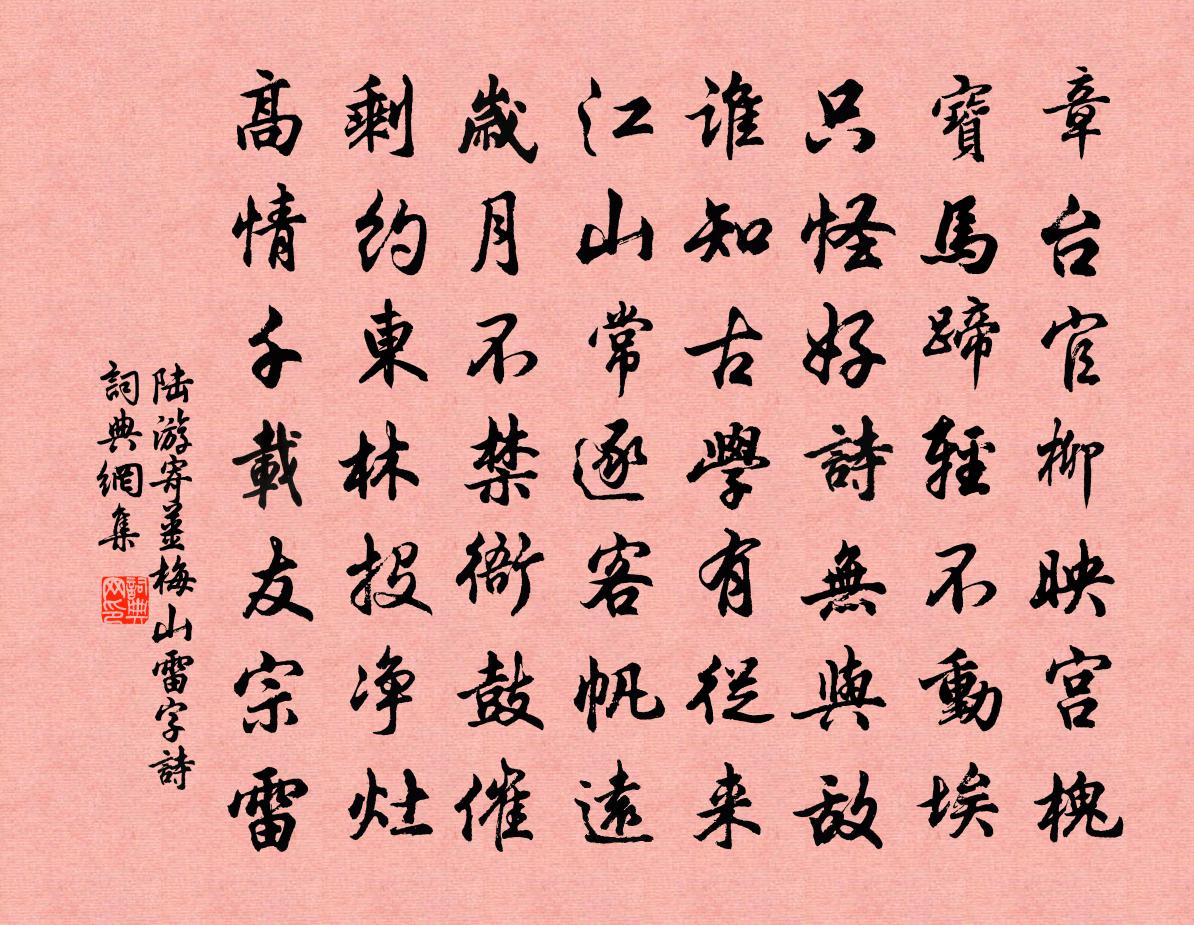 章台官柳映宫槐
寶馬蹄輕不動埃
只怪好詩無與敌
谁知古學有從来
江山常逐客帆遠
歲月不禁衙鼓催
剩約東林投净灶
高情千載友宗雷
陆游寄薑梅山雷字詩
詞典網集